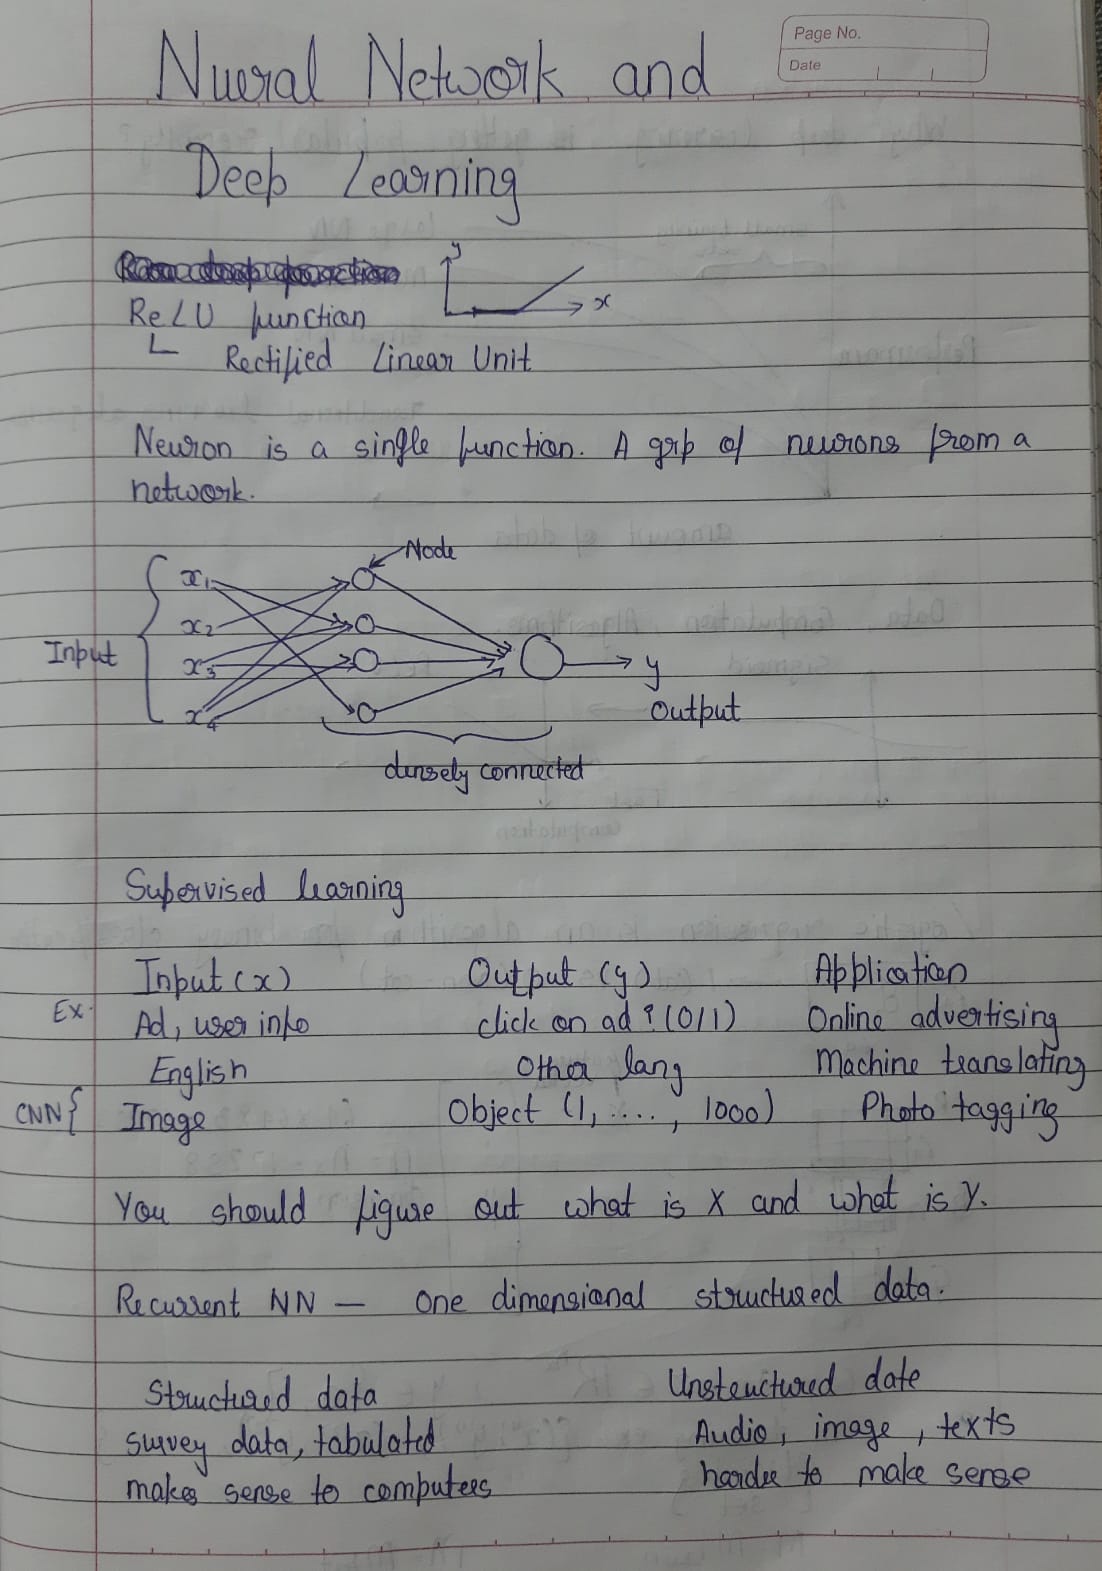 Page No.
Date
Nueral Network and
Deep Learning
y
x
ReLU function
Rectified Linear Unit
Neuron is a single function. A grp of neurons from a
network.
Node
x1
x2
Input
x3
x4
y
Output
densely connected
Supervised learning
Input (x) Output (y) Application
Ex. Ad, user info click on ad? (0/1) Online advertising
English Other lang Machine translating
CNN{ Image Object (1, ...., 1000) Photo tagging
You should figure out what is X and what is Y.
Recurrent NN — one dimensional structured data.
Structured data Unstructured date
survey data, tabulated Audio, image, texts
makes sense to computers harder to make sense